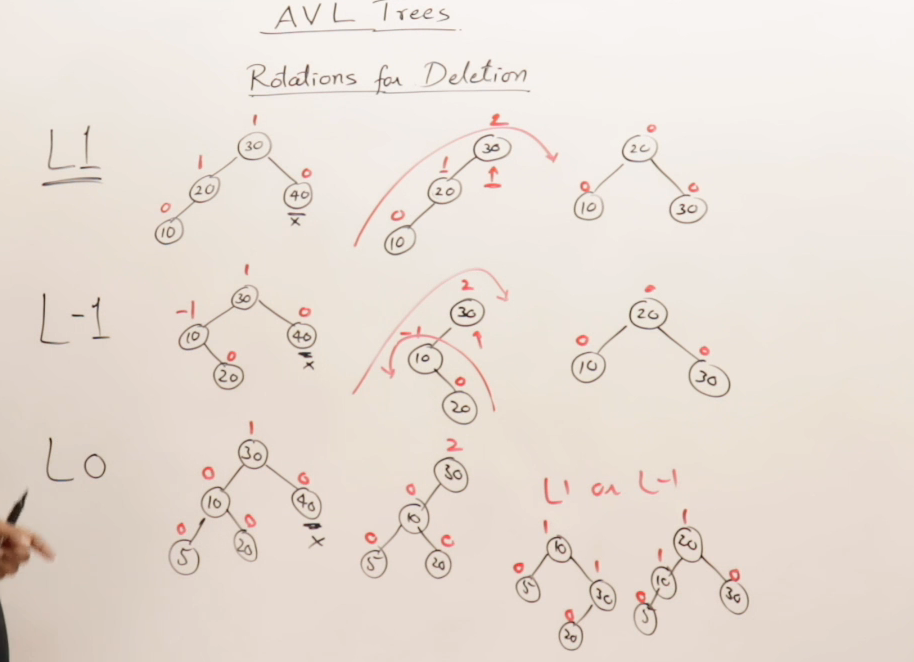 AVL Trees
Rotations for Deletion
L1
1
30
1
20
0
40
x
0
10
2
30
1
1
20
0
10
0
20
0
10
0
30
L-1
1
30
-1
10
0
40
x
0
20
2
30
-1
10
0
20
0
20
0
10
0
30
L0
1
30
0
10
0
40
x
0
5
0
20
2
30
0
10
0
5
0
20
L1 or L-1
1
10
0
5
1
30
0
20
1
20
1
10
0
5
0
30